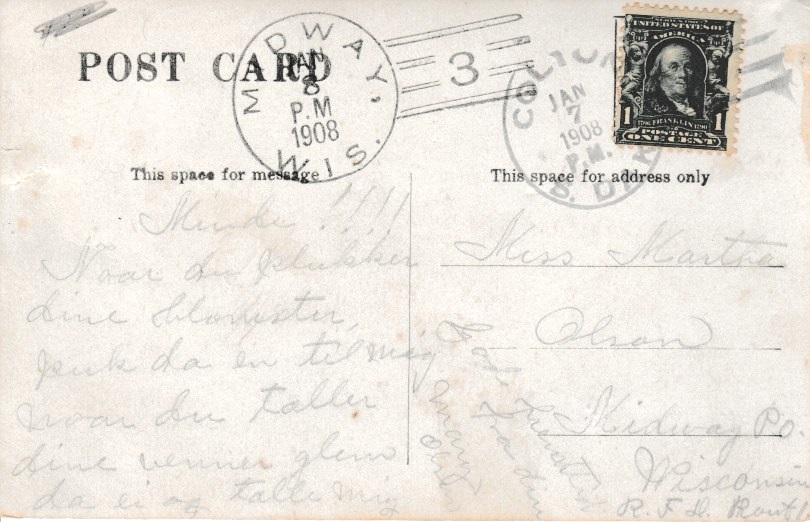 POST CARD
MIDWAY,
JAN
8
P.M
1908
WIS.
3
COLTON
JAN
7
1908
P.M.
S. DAK
SERIES 1902
UNITED STATES OF
AMERICA
1 1706 FRANKLIN 1790 1
POSTAGE
ONE CENT
This space for message
Minde!!!!
Naar du plukker
dine blomster,
puk da en til mig
naar du tæller
dine venner glem
da ei og tælle mig
This space for address only
Miss Martha
Olson
Midway Po.
Wisconsin
R. F. D. Rout 1
Fra din